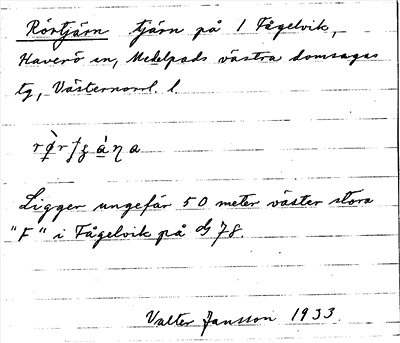 Rörtjärn tjärn på 1 Fågelvik,
Haverö sn, Medelpads västra domsagas
tg, Västernorrl. l
Ligger ungefär 50 meter väster stora
"F" i Fågelvik på dg 78.
Valter Jansson 1933.